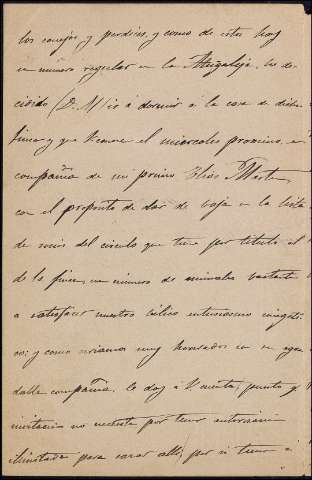 los conejos y perdices, y como de estos hay
un número regular en la he de-
cidido (D. M) ir á dormir á la casa de dicha
finca y que V conoce el miercoles proximo, en
compañia de mi primo Elias
con el proposito de dar de baja en la lista
de del circulo que tiene por titulo el
de la finca, un número de animales bastante
a satisfacer nuestro bélico entusiasmo
y como iriamos muy honrados en su agra-
dable compañia, le doy á V cuenta, punto y
invitacion no necesita por tener autorizacion
ilimitada para cazar allí, por si tiene á